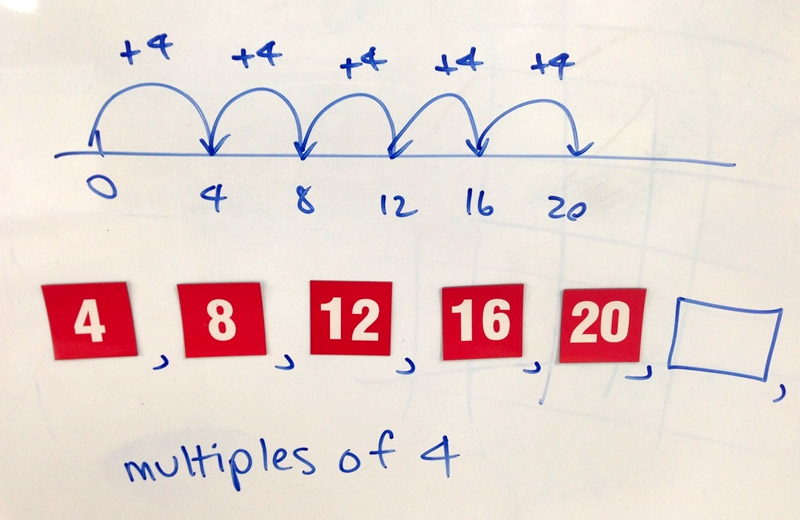 +4 +4 +4 +4 +4
0 4 8 12 16 20
4 , 8 , 12 , 16 , 20 , ,
multiples of 4